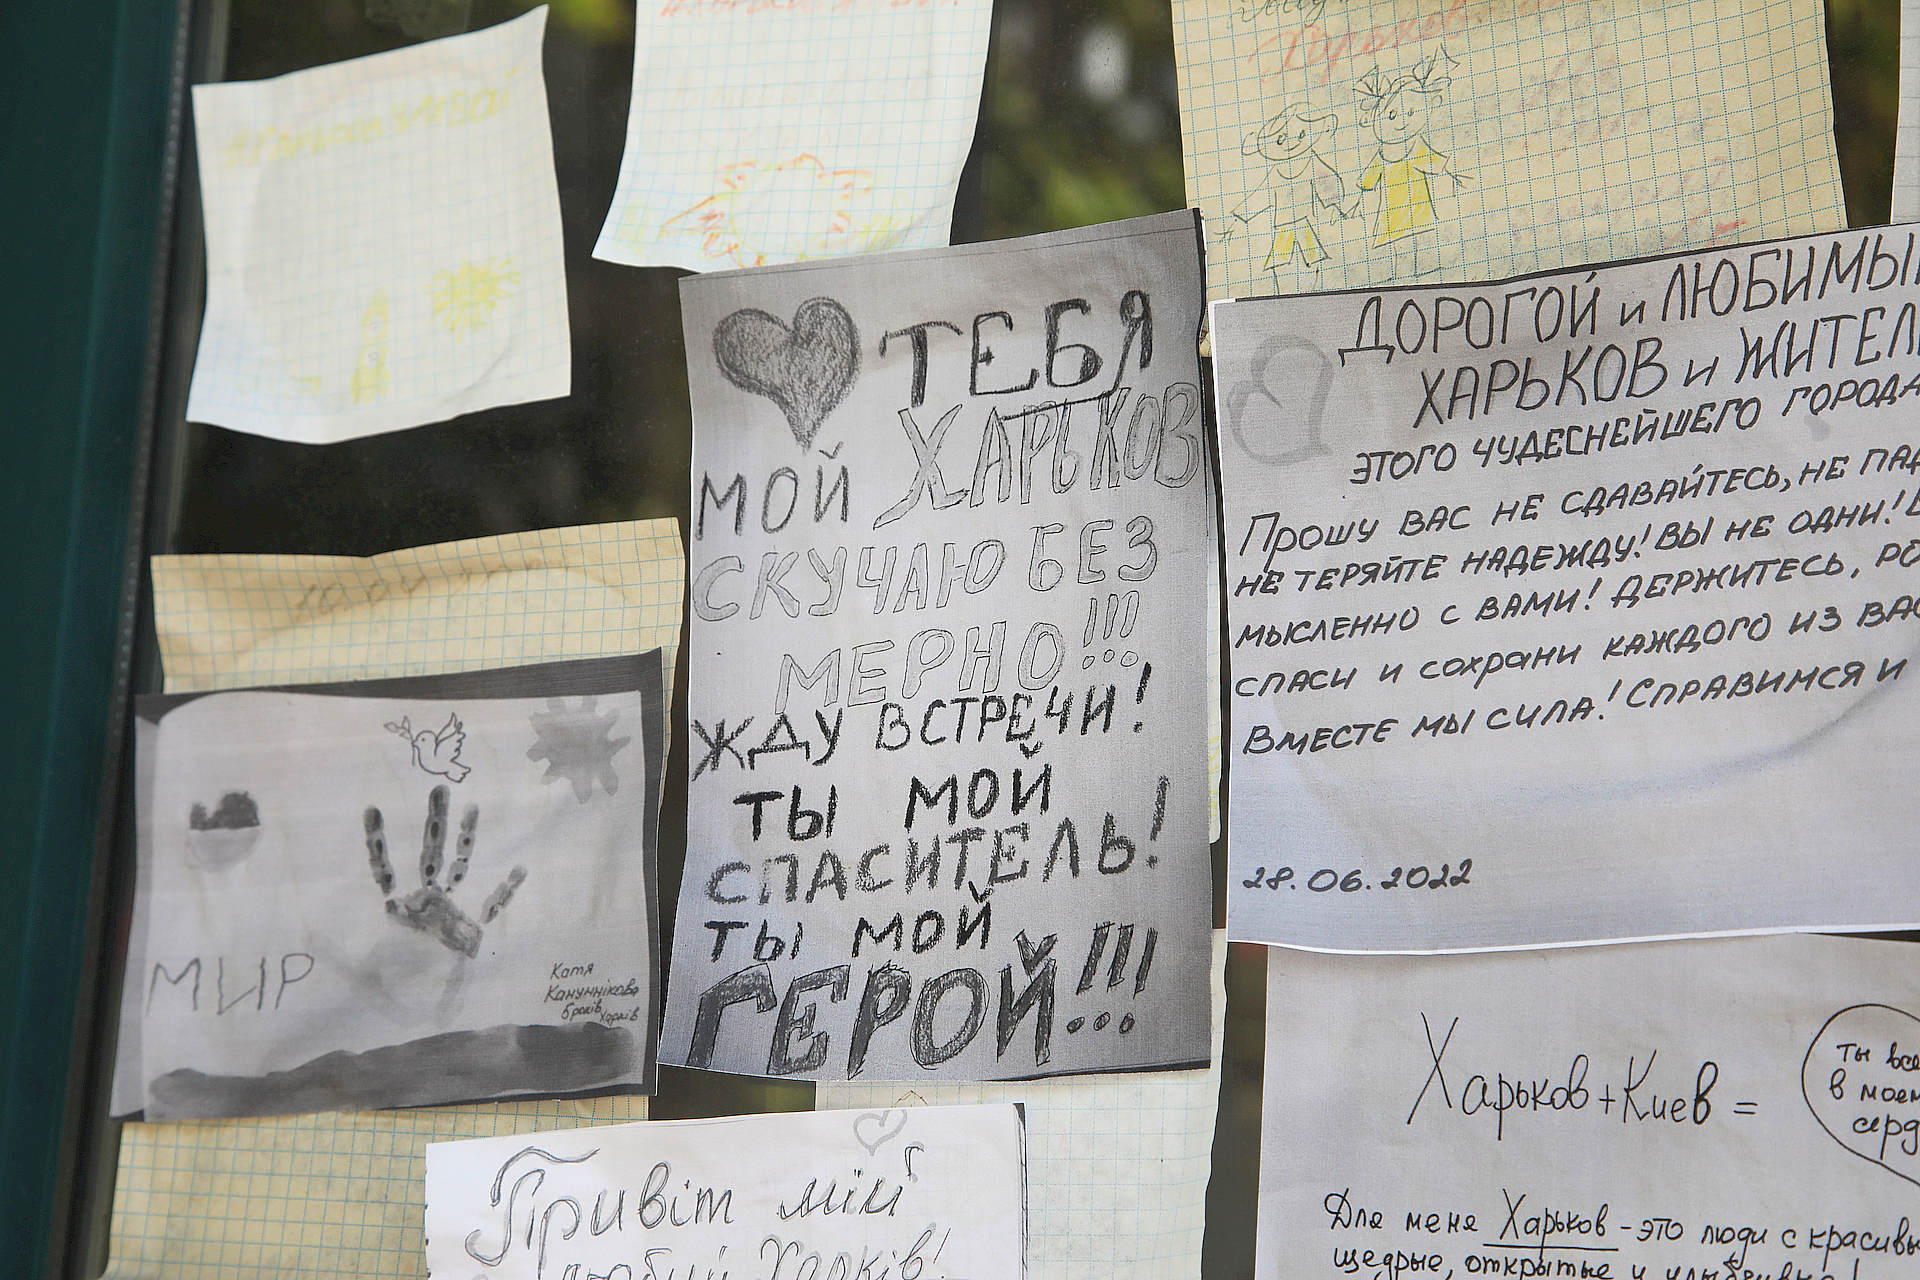 Харьков
ТЕБЯ
МОЙ ХАРЬКОВ
СКУЧАЮ БЕЗ
МЕРНО!!!
ЖДУ ВСТРЕЧИ!
ТЫ МОЙ
СПАСИТЕЛЬ!
ТЫ МОЙ
ГЕРОЙ!!!
ДОРОГОЙ и ЛЮБИМЫ
ХАРЬКОВ и ЖИТЕЛ
ЭТОГО ЧУДЕСНЕЙШЕГО ГОРОДА
ПРОШУ ВАС НЕ СДАВАЙТЕСЬ, НЕ ПАД
НЕ ТЕРЯЙТЕ НАДЕЖДУ! ВЫ НЕ ОДНИ!
МЫСЛЕННО С ВАМИ! ДЕРЖИТЕСЬ, РО
СПАСИ И СОХРАНИ КАЖДОГО ИЗ ВАС
ВМЕСТЕ МЫ СИЛА! СПРАВИМСЯ И
28.06.2022
МИР
Катя
Кануннікова
6років
Харків
Харьков+Киев =
ты все
в моем
серд
Для меня Харьков - это люди с красивы
щедрые, открытые и улыбчивые!
Привіт мій
любий Харків!